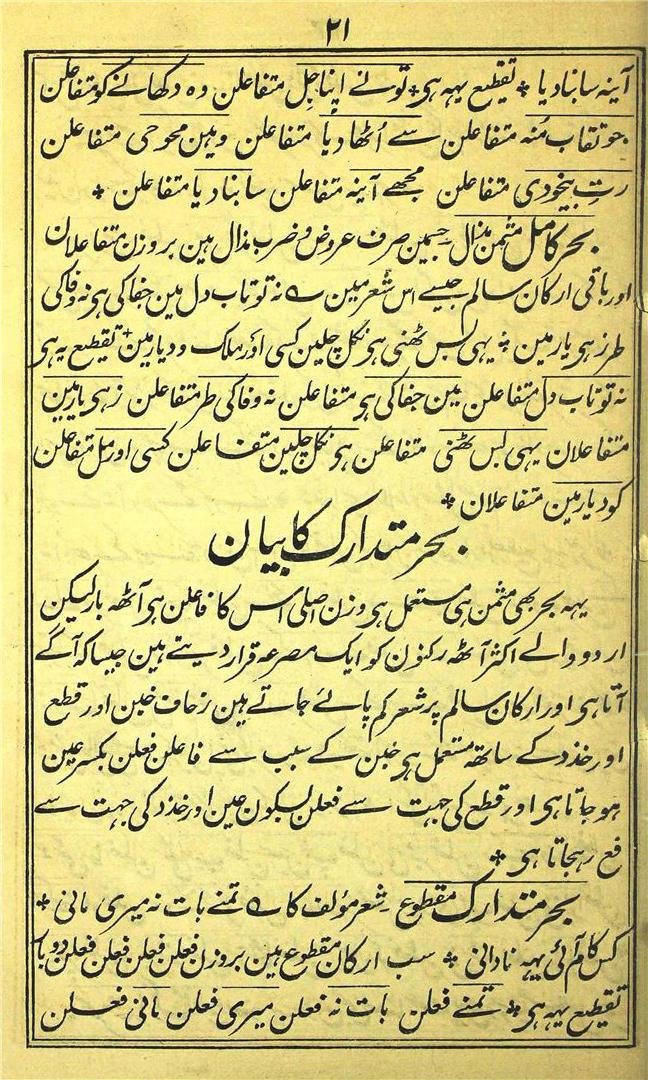 ۲۱
آینہ سا بنا دیا * تقطیع یہہ ہی * تونے اپنا جل متفاعلن وہ دکھانے کو متفاعلن
جو نقاب مُنہ متفاعلن سے اُٹھا دیا متفاعلن وہین محو حی متفاعلن
رتِ بیخودی متفاعلن مجھے آینہ متفاعلن سا بنا دیا متفاعلن *
بحر کامل مثمن مذال جسمین صرف عروض و ضرب مذال ہین بروزن متفاعلان
اور باقی ارکان سالم جیسے اس شعر مین ے نہ تو تاب دل مین جفا کی ہی نہ وفا کی
طرز ہی یار مین * یہی بس ٹھنی ہی نکل چلین کسی اور ملک و دیار مین * تقطیع یہ ہی
نہ تو تاب دل متفاعلن مین جفا کی ہی متفاعلن نہ وفا کی طر متفاعلن ز ہی یار مین
متفاعلان یہی بس ٹھنی متفاعلن ہی نکل چلین متفاعلن کسی اور مل متفاعلن
کو دیار مین متفاعلان *
بحر متدارک کا بیان
یہہ بحر بھی مثمن ہی مستعمل ہی وزن اصلی اس کا فاعلن ہی آٹھہ بار لیکن
اردو والے اکثر آٹھہ رکنون کو ایک مصرعہ قرار دیتے ہین جیسا کہ آگے
آتا ہی اور ارکان سالم پر شعر کم پائے جاتے ہین زحاف خبن اور قطع
اور خذذ کے ساتھہ مستعمل ہی خبن کے سبب سے فاعلن فعلن بکسر عین
ہو جاتا ہی اور قطع کی جہت سے فعلن بسکون عین اور خذذ کی جہت سے
فع رہجاتا ہی *
بحر متدارک مقطوع شعر مؤلف کا ے تمنے بات نہ میری مانی *
کس کام آئی یہہ نادانی * سب ارکان مقطوع ہین بروزن فعلن فعلن فعلن فعلن دو بار
تقطیع یہہ ہی * تمنے فعلن بات نہ فعلن میری فعلن مانی فعلن